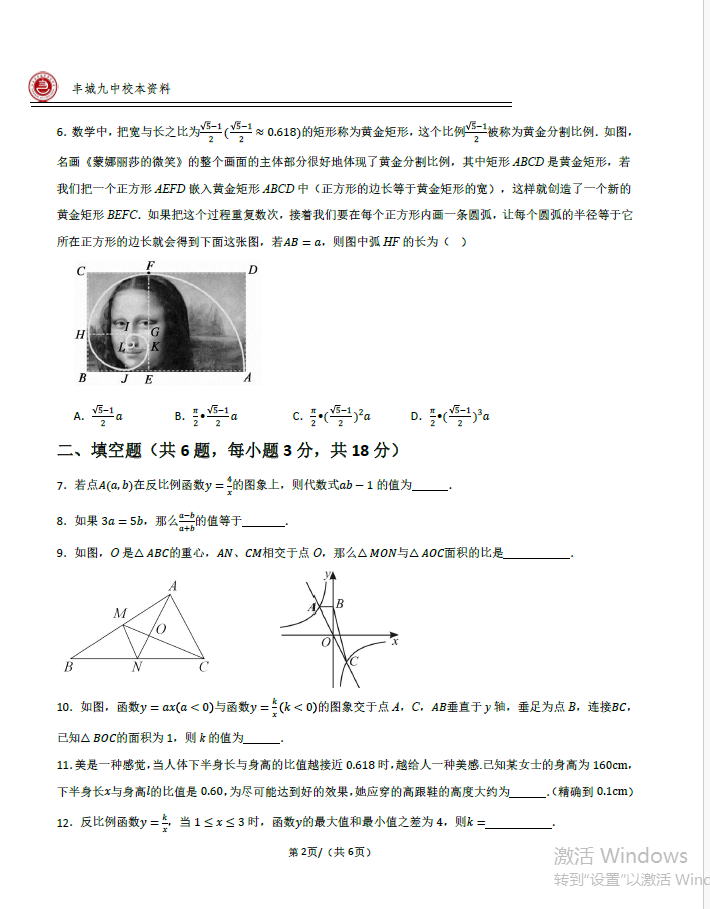 丰城九中校本资料
6．数学中，把宽与长之比为$\frac{\sqrt{5}-1}{2}$($\frac{\sqrt{5}-1}{2}$ ≈ 0.618)的矩形称为黄金矩形，这个比例$\frac{\sqrt{5}-1}{2}$被称为黄金分割比例．如图，
名画《蒙娜丽莎的微笑》的整个画面的主体部分很好地体现了黄金分割比例，其中矩形 ABCD 是黄金矩形，若
我们把一个正方形 AEFD 嵌入黄金矩形 ABCD 中（正方形的边长等于黄金矩形的宽），这样就创造了一个新的
黄金矩形 BEFC．如果把这个过程重复数次，接着我们要在每个正方形内画一条圆弧，让每个圆弧的半径等于它
所在正方形的边长就会得到下面这张图，若AB = a，则图中弧 HF 的长为（ ）
C F D
H I G
L K
B J E A
A．$\frac{\sqrt{5}-1}{2}$a B．$\frac{π}{2}$•$\frac{\sqrt{5}-1}{2}$a C．$\frac{π}{2}$•($\frac{\sqrt{5}-1}{2}$)²a D．$\frac{π}{2}$•($\frac{\sqrt{5}-1}{2}$)³a
二、填空题（共 6 题，每小题 3 分，共 18 分）
7．若点A(a, b)在反比例函数y = $\frac{4}{x}$的图象上，则代数式ab − 1 的值为______．
8．如果 3a = 5b，那么$\frac{a-b}{a+b}$的值等于_______．
9．如图，O 是△ ABC的重心，AN、CM相交于点 O，那么△ MON与△ AOC面积的比是___________．
A
M
O
B N C
y
A B
O x
C
10．如图，函数y = ax(a < 0)与函数y = $\frac{k}{x}$(k < 0)的图象交于点 A，C，AB垂直于 y 轴，垂足为点 B，连接BC，
已知△ BOC的面积为 1，则 k 的值为______．
11.美是一种感觉,当人体下半身长与身高的比值越接近 0.618 时,越给人一种美感.已知某女士的身高为 160cm，
下半身长x与身高l的比值是 0.60,为尽可能达到好的效果,她应穿的高跟鞋的高度大约为______.（精确到 0.1cm）
12．反比例函数y = $\frac{k}{x}$，当 1 ≤ x ≤ 3 时，函数y的最大值和最小值之差为 4，则k =___________．
第 2页/（共 6页）
激活 Windows
转到"设置"以激活 Winc